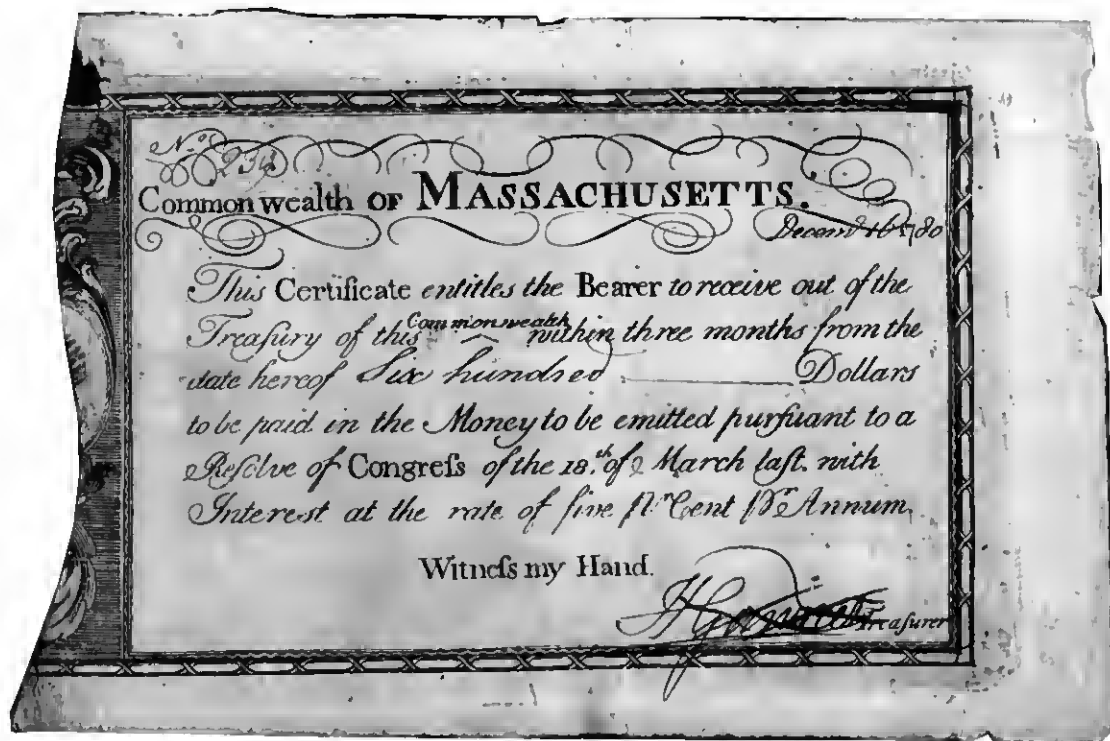 No. 
Commonwealth OF MASSACHUSETTS.
Decemr 1780
This Certificate entitles the Bearer to receive out of the
Treaſury of this Commonwealth within three months from the
date hereof Six hundred Dollars
to be paid in the Money to be emitted purſuant to a
Reſolve of Congreſs of the 18.th of March laſt. with
Intereſt at the rate of five Pr. Cent Pr. Annum
Witneſs my Hand.
Treaſurer